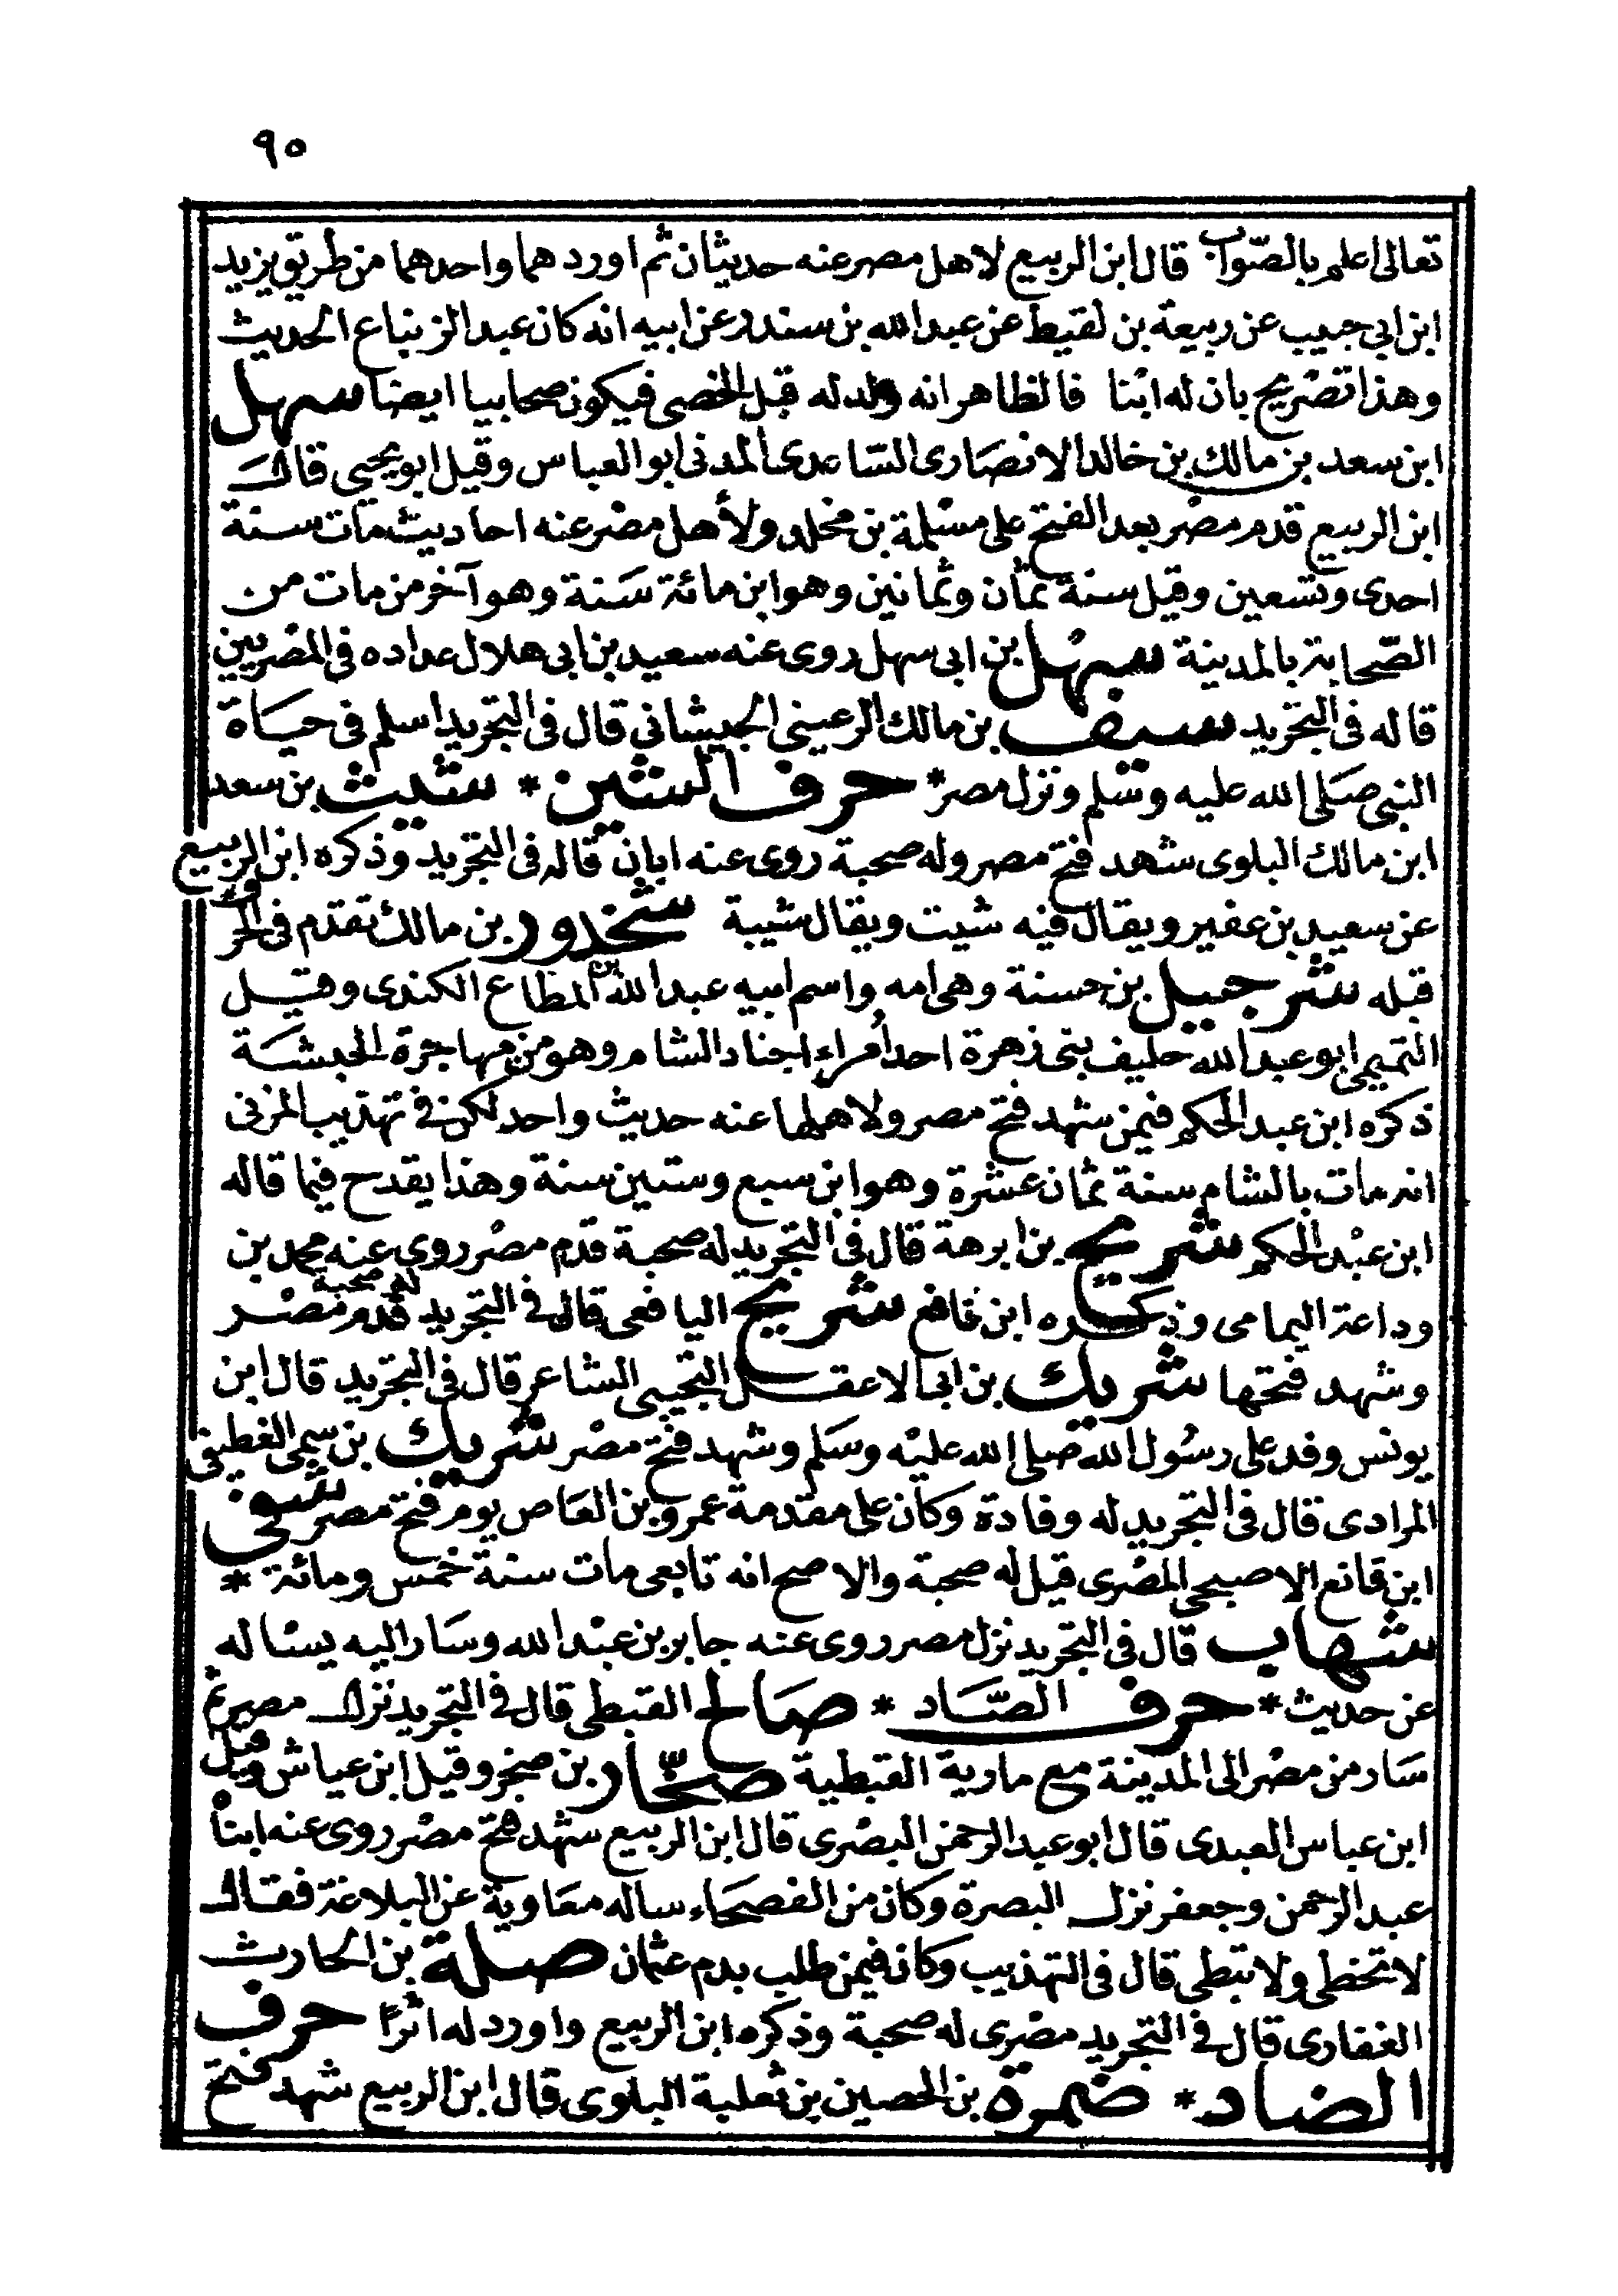 ٩٥
تعالى اعلم بالصّواب قال ابن الربيع لاهل مصر عنه حديثان ثم اوردهما واحدهما من طريق يزيد
ابن ابي حبيب عن ربيعة بن لقيط عن عبدالله بن سندر عن ابيه انه كان عبد الزنباع الحديث
وهذا تصريح بان له ابنا فالظاهر انه ولد له قبل الخصى فيكون صحابيا ايضا سهل
ابن سعد بن مالك بن خالد الانصارى السّاعدى المدنى ابو العباس وقيل ابو يحيى قال
ابن الربيع قدم مصر بعد الفتح على مسلمة بن مخلد ولأهل مصر عنه احاديث مات سنة
احدى وتسعين وقيل سنة ثمان وثمانين وهو ابن مائة سنة وهو آخر من مات من
الصّحابة بالمدينة سهل بن ابى سهل روى عنه سعيد بن ابى هلال عداده فى المصريين
قاله فى التجريد سيف بن مالك الرعينى الجيشانى قال فى التجريد اسلم فى حياة
النبى صلى الله عليه وسلم ونزل مصر * حرف الشين * شيث بن سعد
ابن مالك البلوى شهد فتح مصر وله صحبة روى عنه ابان قاله فى التجريد وذكره ابن الربيع
عن سعيد بن عفير ويقال فيه شيت ويقال شيبة شخدور بن مالك تقدم فى الحرف
قبله شرحبيل بن حسنة وهى امه واسم ابيه عبد الله بن المطاع الكندى وقيل
التميمى ابو عبد الله حليف بنى زهرة احد أمراء اجناد الشام وهو من مهاجرة الحبشة
ذكره ابن عبد الحكم فيمن شهد فتح مصر ولاهلها عنه حديث واحد لكن فى تهذيب المزنى
انه مات بالشام سنة ثمان عشرة وهو ابن سبع وستين سنة وهذا يقدح فيما قاله
ابن عبد الحكم شريح بن ابرهة قال فى التجريد له صحبة قدم مصر روى عنه محمد بن
وداعة اليمامى وذكره ابن قانع شريح اليافعى قال فى التجريد له صحبة قدم مصر
وشهد فتحها شريك بن ابى الاعقل التجيبى الشاعر قال فى التجريد قال ابن
يونس وفد على رسول الله صلى الله عليه وسلم وشهد فتح مصر شريك بن سمى الغطيفى
المرادى قال فى التجريد له وفادة وكان على مقدمة عمرو بن العاص يوم فتح مصر شفى
ابن قانع الاصبحى المصرى قيل له صحبة والاصح انه تابعى مات سنة خمس ومائة *
شهاب قال فى التجريد نزل مصر روى عنه جابر بن عبد الله وسار اليه يساله
عن حديث * حرف الصّاد * صالح القبطى قال فى التجريد نزل مصر ثم
سار من مصر الى المدينة مع مارية القبطية صحّار بن صخر وقيل ابن عياش وقيل
ابن عباس العبدى قال ابو عبد الرحمن البصرى قال ابن الربيع شهد فتح مصر روى عنه ابناه
عبد الرحمن وجعفر نزل البصرة وكان من الفصحاء ساله معاوية عن البلاغة فقال
لا تخطى ولا تبطى قال فى التهذيب وكان فيمن طلب بدم عثمان صلة بن الحارث
الغفارى قال فى التجريد مصرى له صحبة وذكره ابن الربيع واورد له اثرًا حرف
الضاد * ضمرة بن الحصين بن ثعلبة البلوى قال ابن الربيع شهد فتح